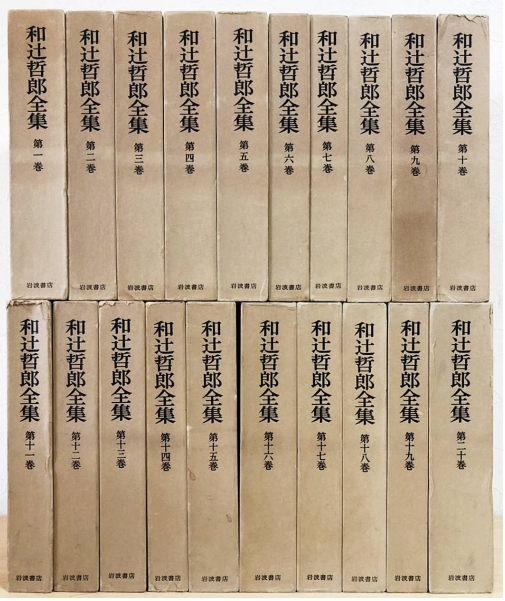 和辻哲郎全集 第一巻 岩波書店
和辻哲郎全集 第二巻 岩波書店
和辻哲郎全集 第三巻 岩波書店
和辻哲郎全集 第四巻 岩波書店
和辻哲郎全集 第五巻 岩波書店
和辻哲郎全集 第六巻 岩波書店
和辻哲郎全集 第七巻 岩波書店
和辻哲郎全集 第八巻 岩波書店
和辻哲郎全集 第九巻 岩波書店
和辻哲郎全集 第十巻 岩波書店
和辻哲郎全集 第十一巻 岩波書店
和辻哲郎全集 第十二巻 岩波書店
和辻哲郎全集 第十三巻 岩波書店
和辻哲郎全集 第十四巻 岩波書店
和辻哲郎全集 第十五巻 岩波書店
和辻哲郎全集 第十六巻 岩波書店
和辻哲郎全集 第十七巻 岩波書店
和辻哲郎全集 第十八巻 岩波書店
和辻哲郎全集 第十九巻 岩波書店
和辻哲郎全集 第二十巻 岩波書店